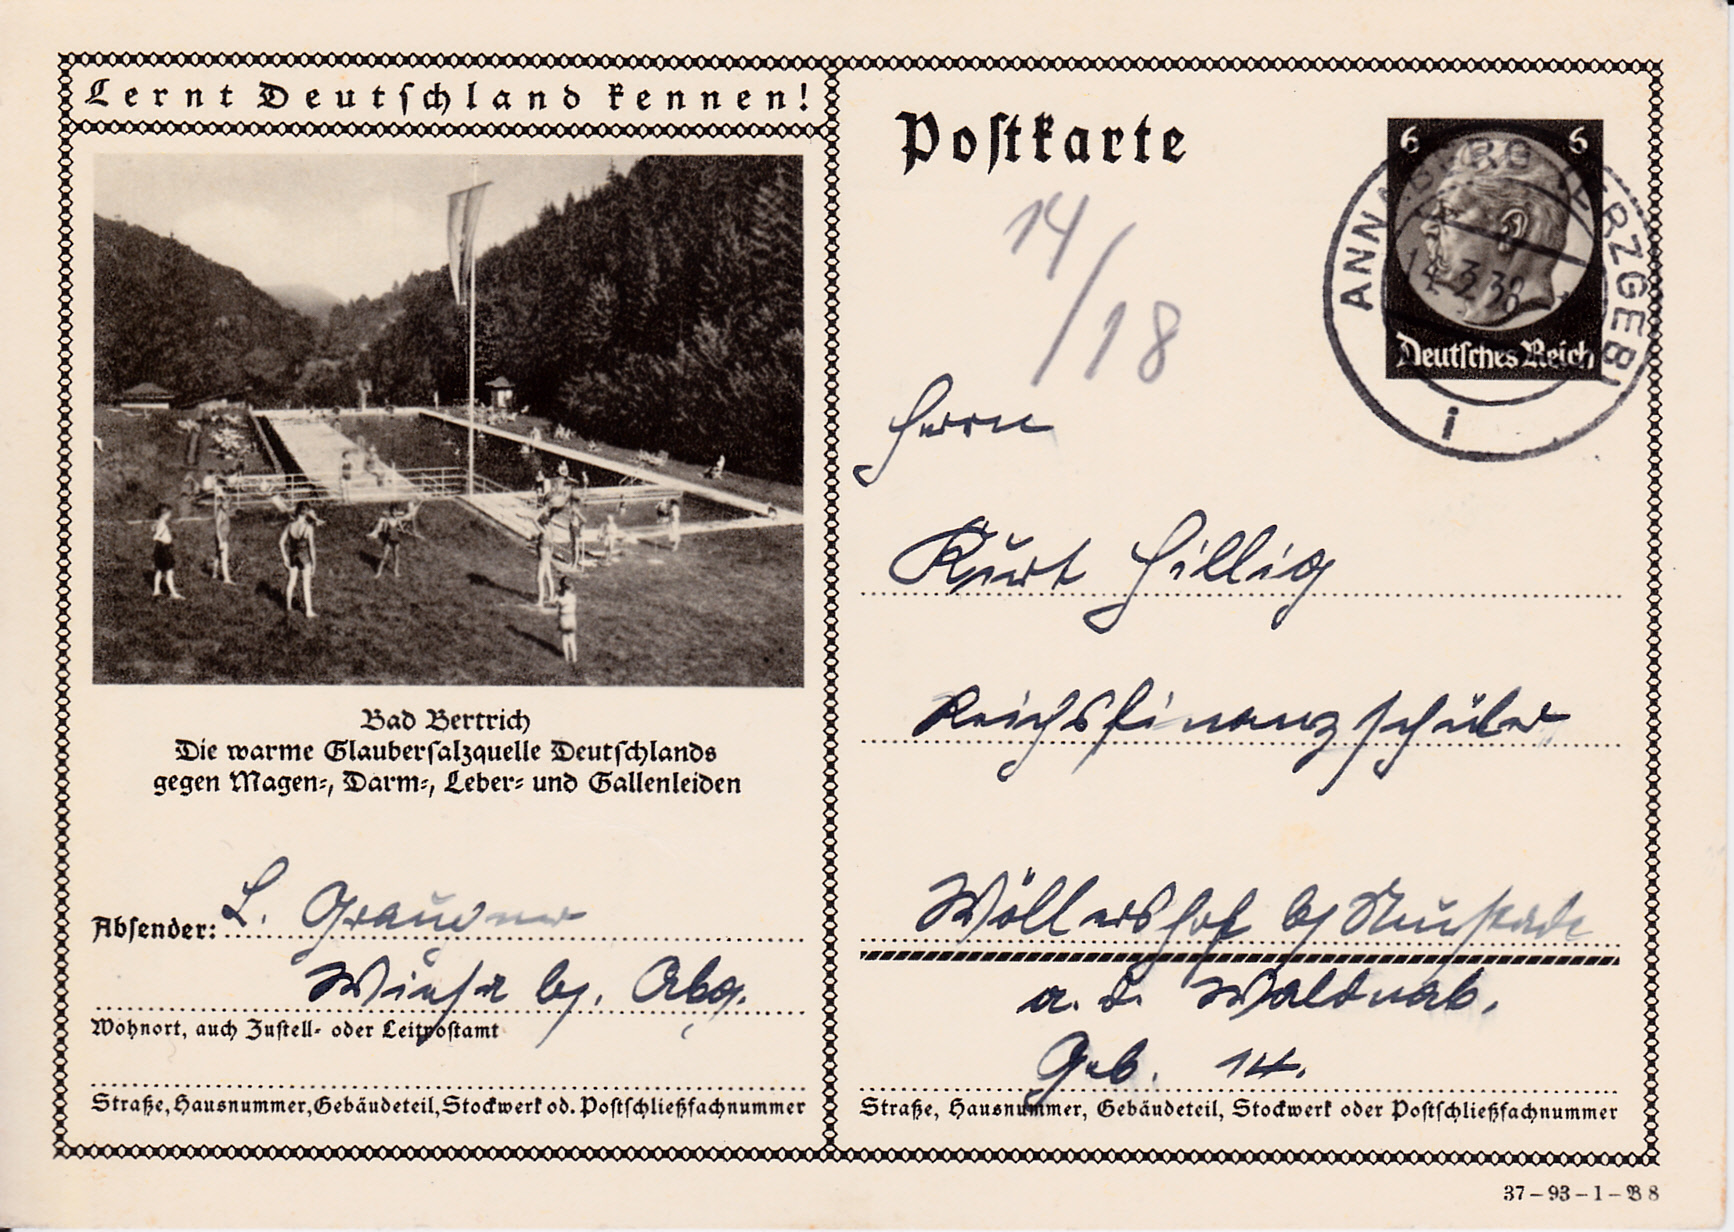 Lernt Deutschland kennen!
Bad Bertrich
Die warme Glaubersalzquelle Deutschlands
gegen Magen-, Darm-, Leber- und Gallenleiden
Absender: L. Graubner
Wiesa bg. Abg.
Wohnort, auch Zustell- oder Leitpostamt
Straße, Hausnummer, Gebäudeteil, Stockwerk od. Postschließfachnummer
Postkarte
6 6
Deutsches Reich
ANNABERG (ERZGEB)
14.3.38
i
14/18
Herrn
Kurt Hillig
Reichsfinanzschüler
Wöllershof bg Neustadt
a. d. Waldnab.
Geb. 14.
Straße, Hausnummer, Gebäudeteil, Stockwerk oder Postschließfachnummer
37-93-1-B8